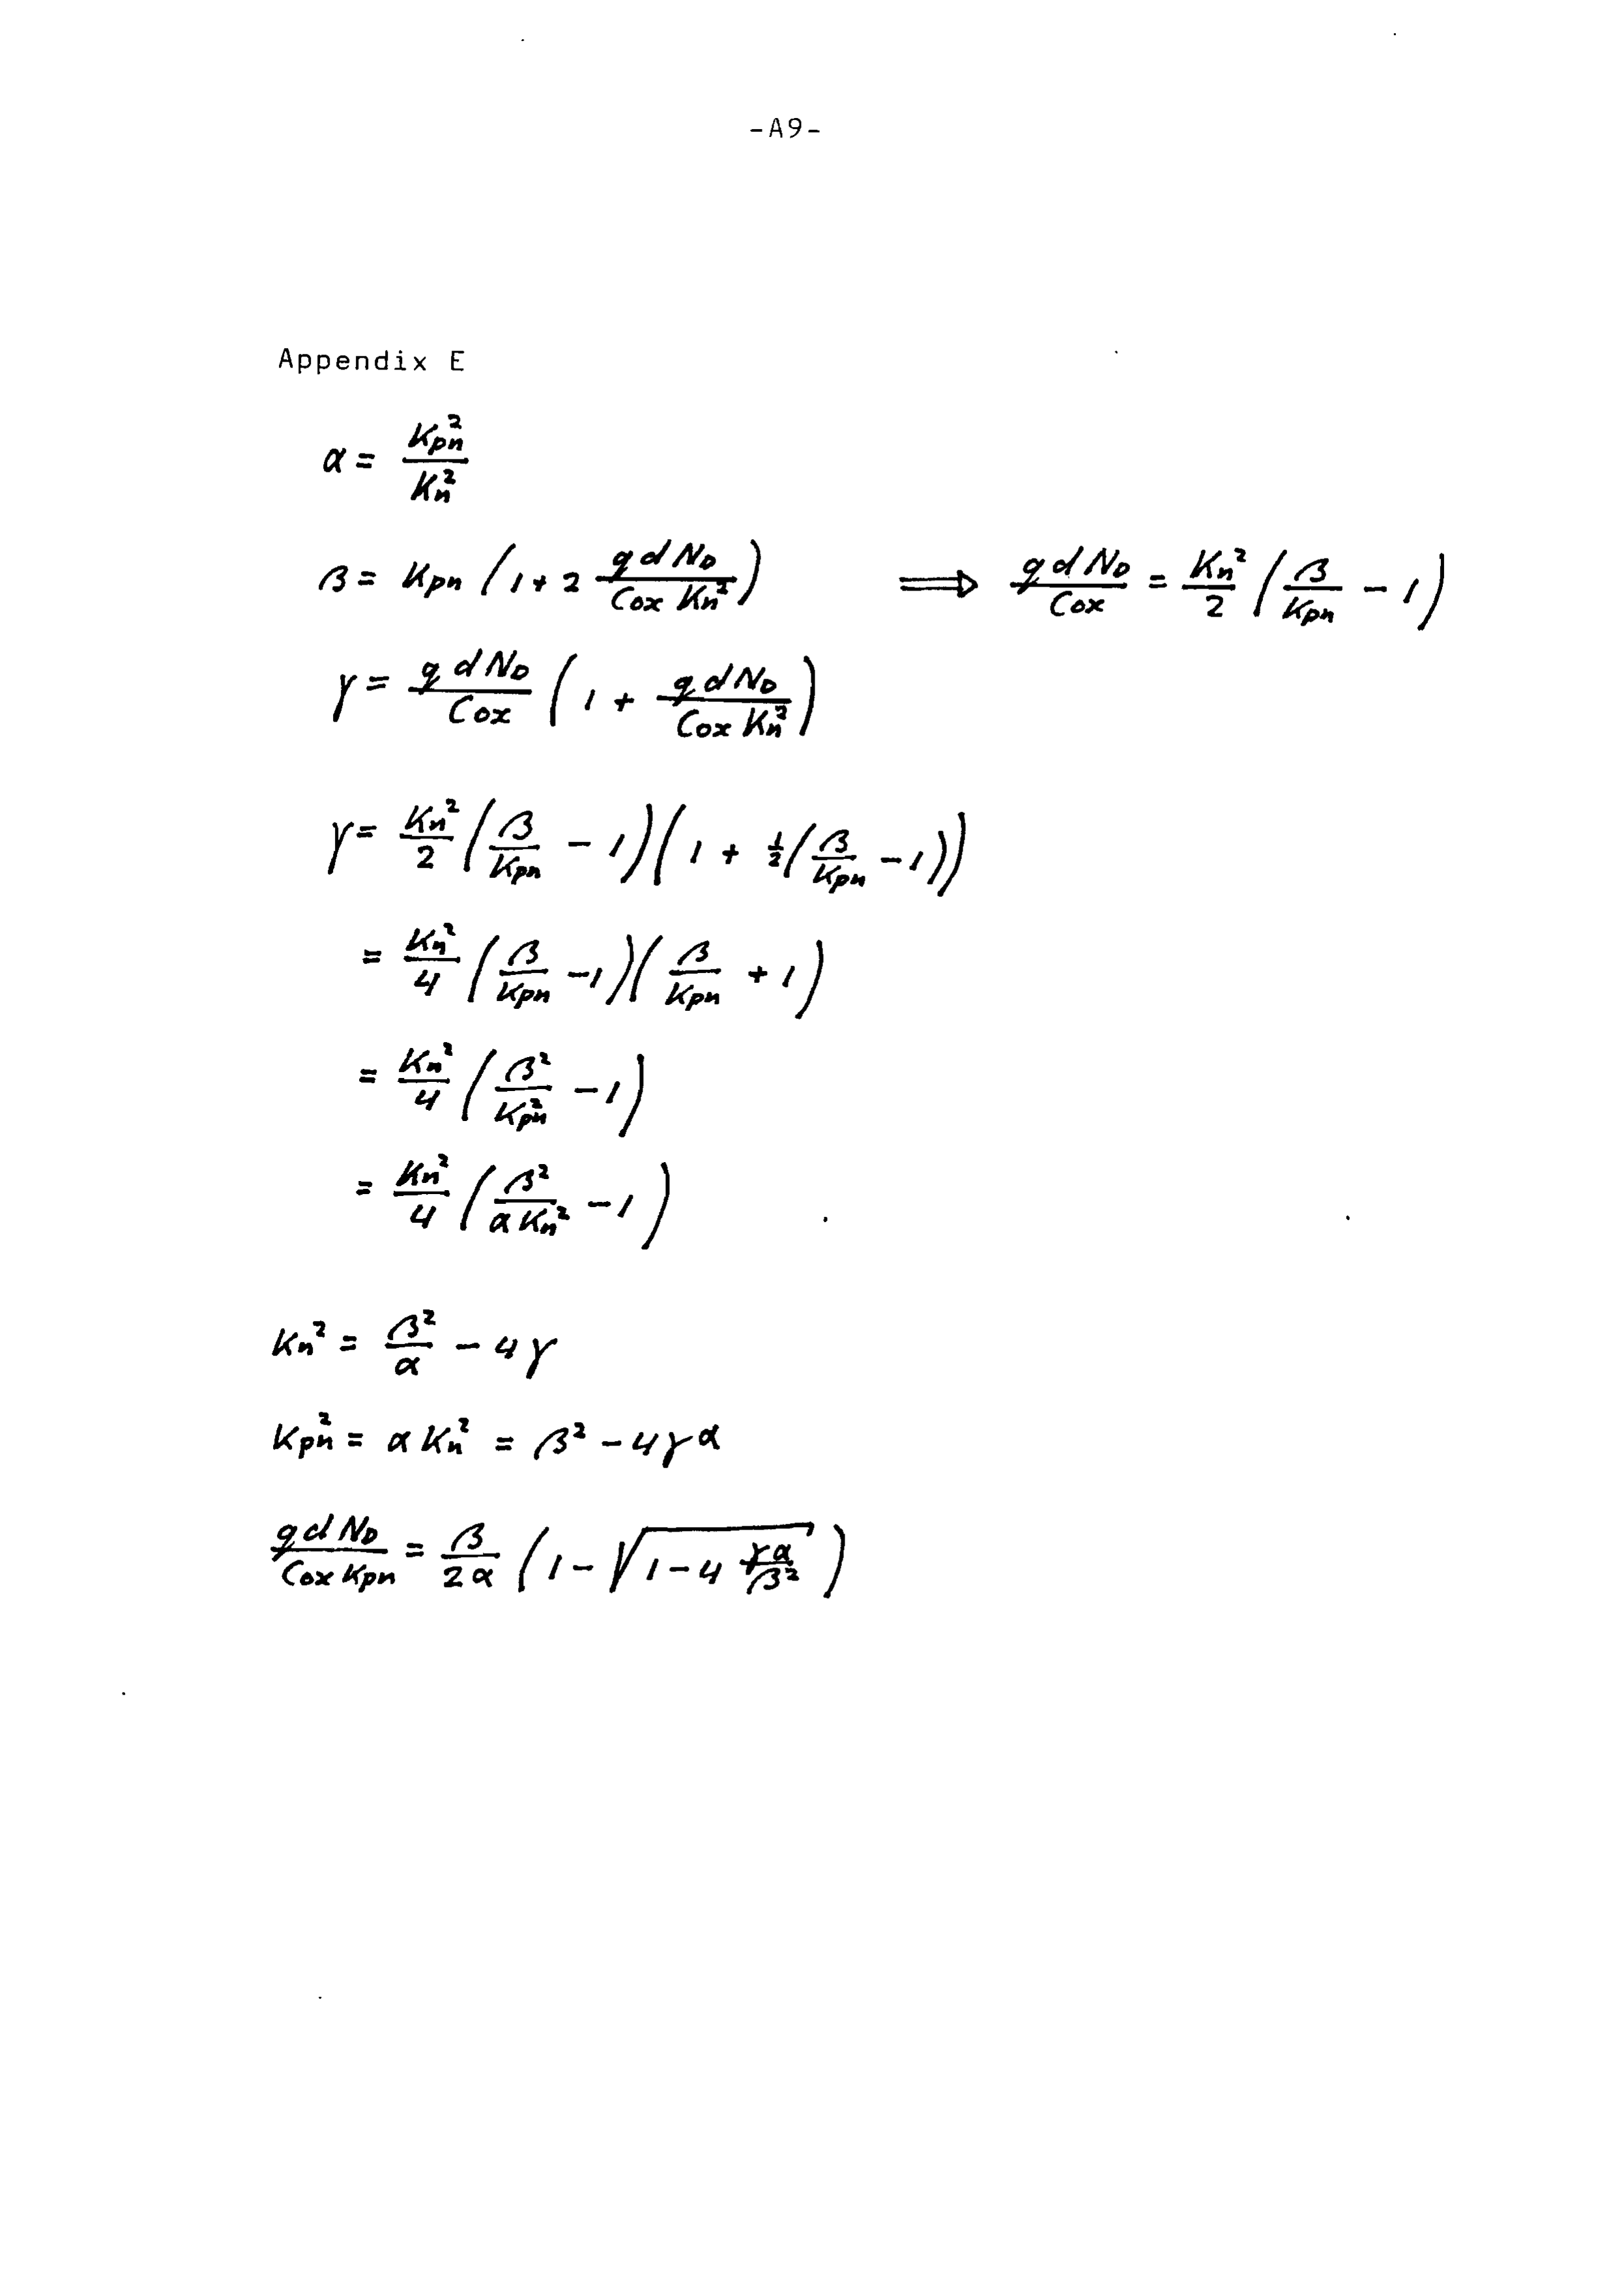 -A9-
Appendix E
α = Kpn² / Kn²
β = Kpn (1 + 2 q d N_D / (Cox Kn²)) ⟹ q d N_D / Cox = Kn²/2 (β/Kpn − 1)
γ = q d N_D / Cox (1 + q d N_D / (Cox Kn²))
γ = Kn²/2 (β/Kpn − 1)(1 + ½(β/Kpn − 1))
= Kn²/4 (β/Kpn − 1)(β/Kpn + 1)
= Kn²/4 (β²/Kpn² − 1)
= Kn²/4 (β²/(α Kn²) − 1)
Kn² = β²/α − 4γ
Kpn² = α Kn² = β² − 4γα
q d N_D / (Cox Kpn) = β/(2α) (1 − √(1 − 4 γα/β²))